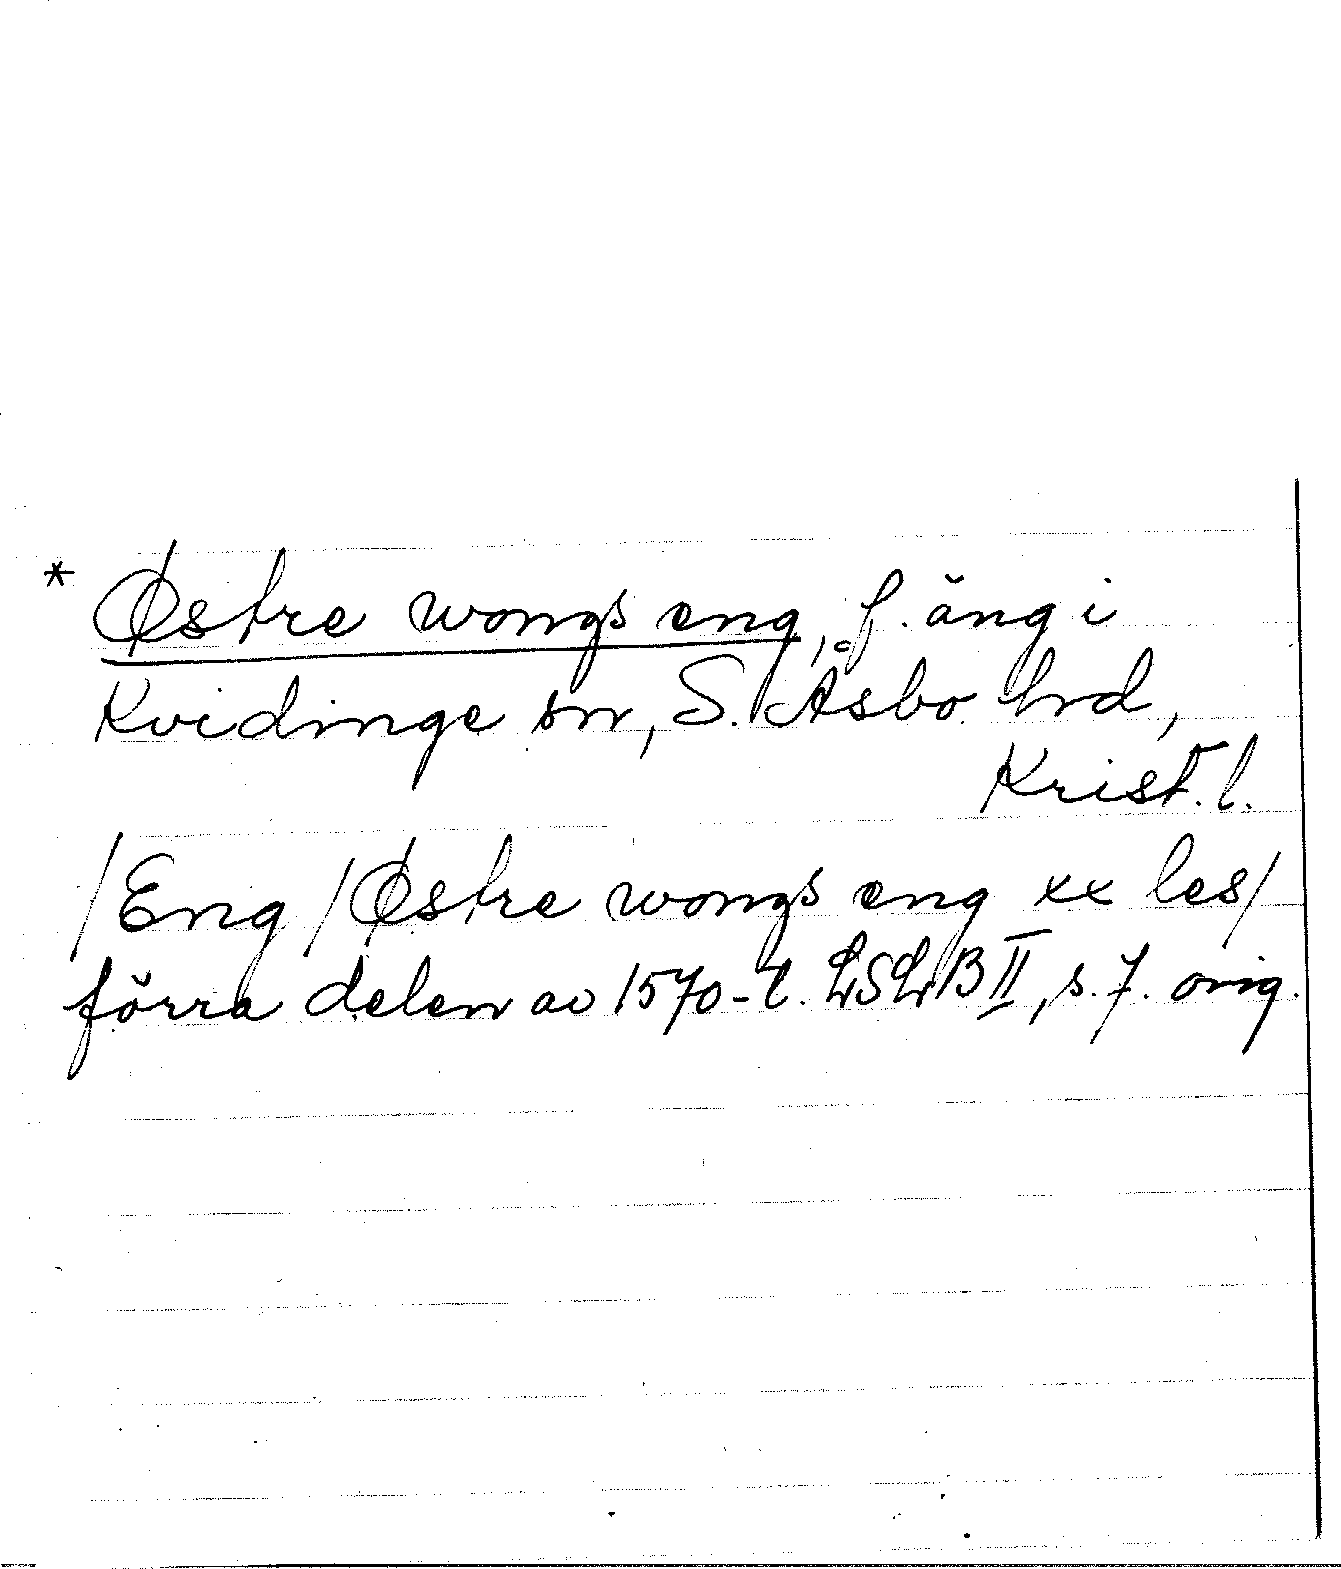 * Østre wongs eng, f. äng i
Kvidinge sn, S. Åsbo hrd,
Krist. l.
/Eng/Østre wongs eng xx les/
förra delen av 1570-t. LSLB II, s. 7. orig.